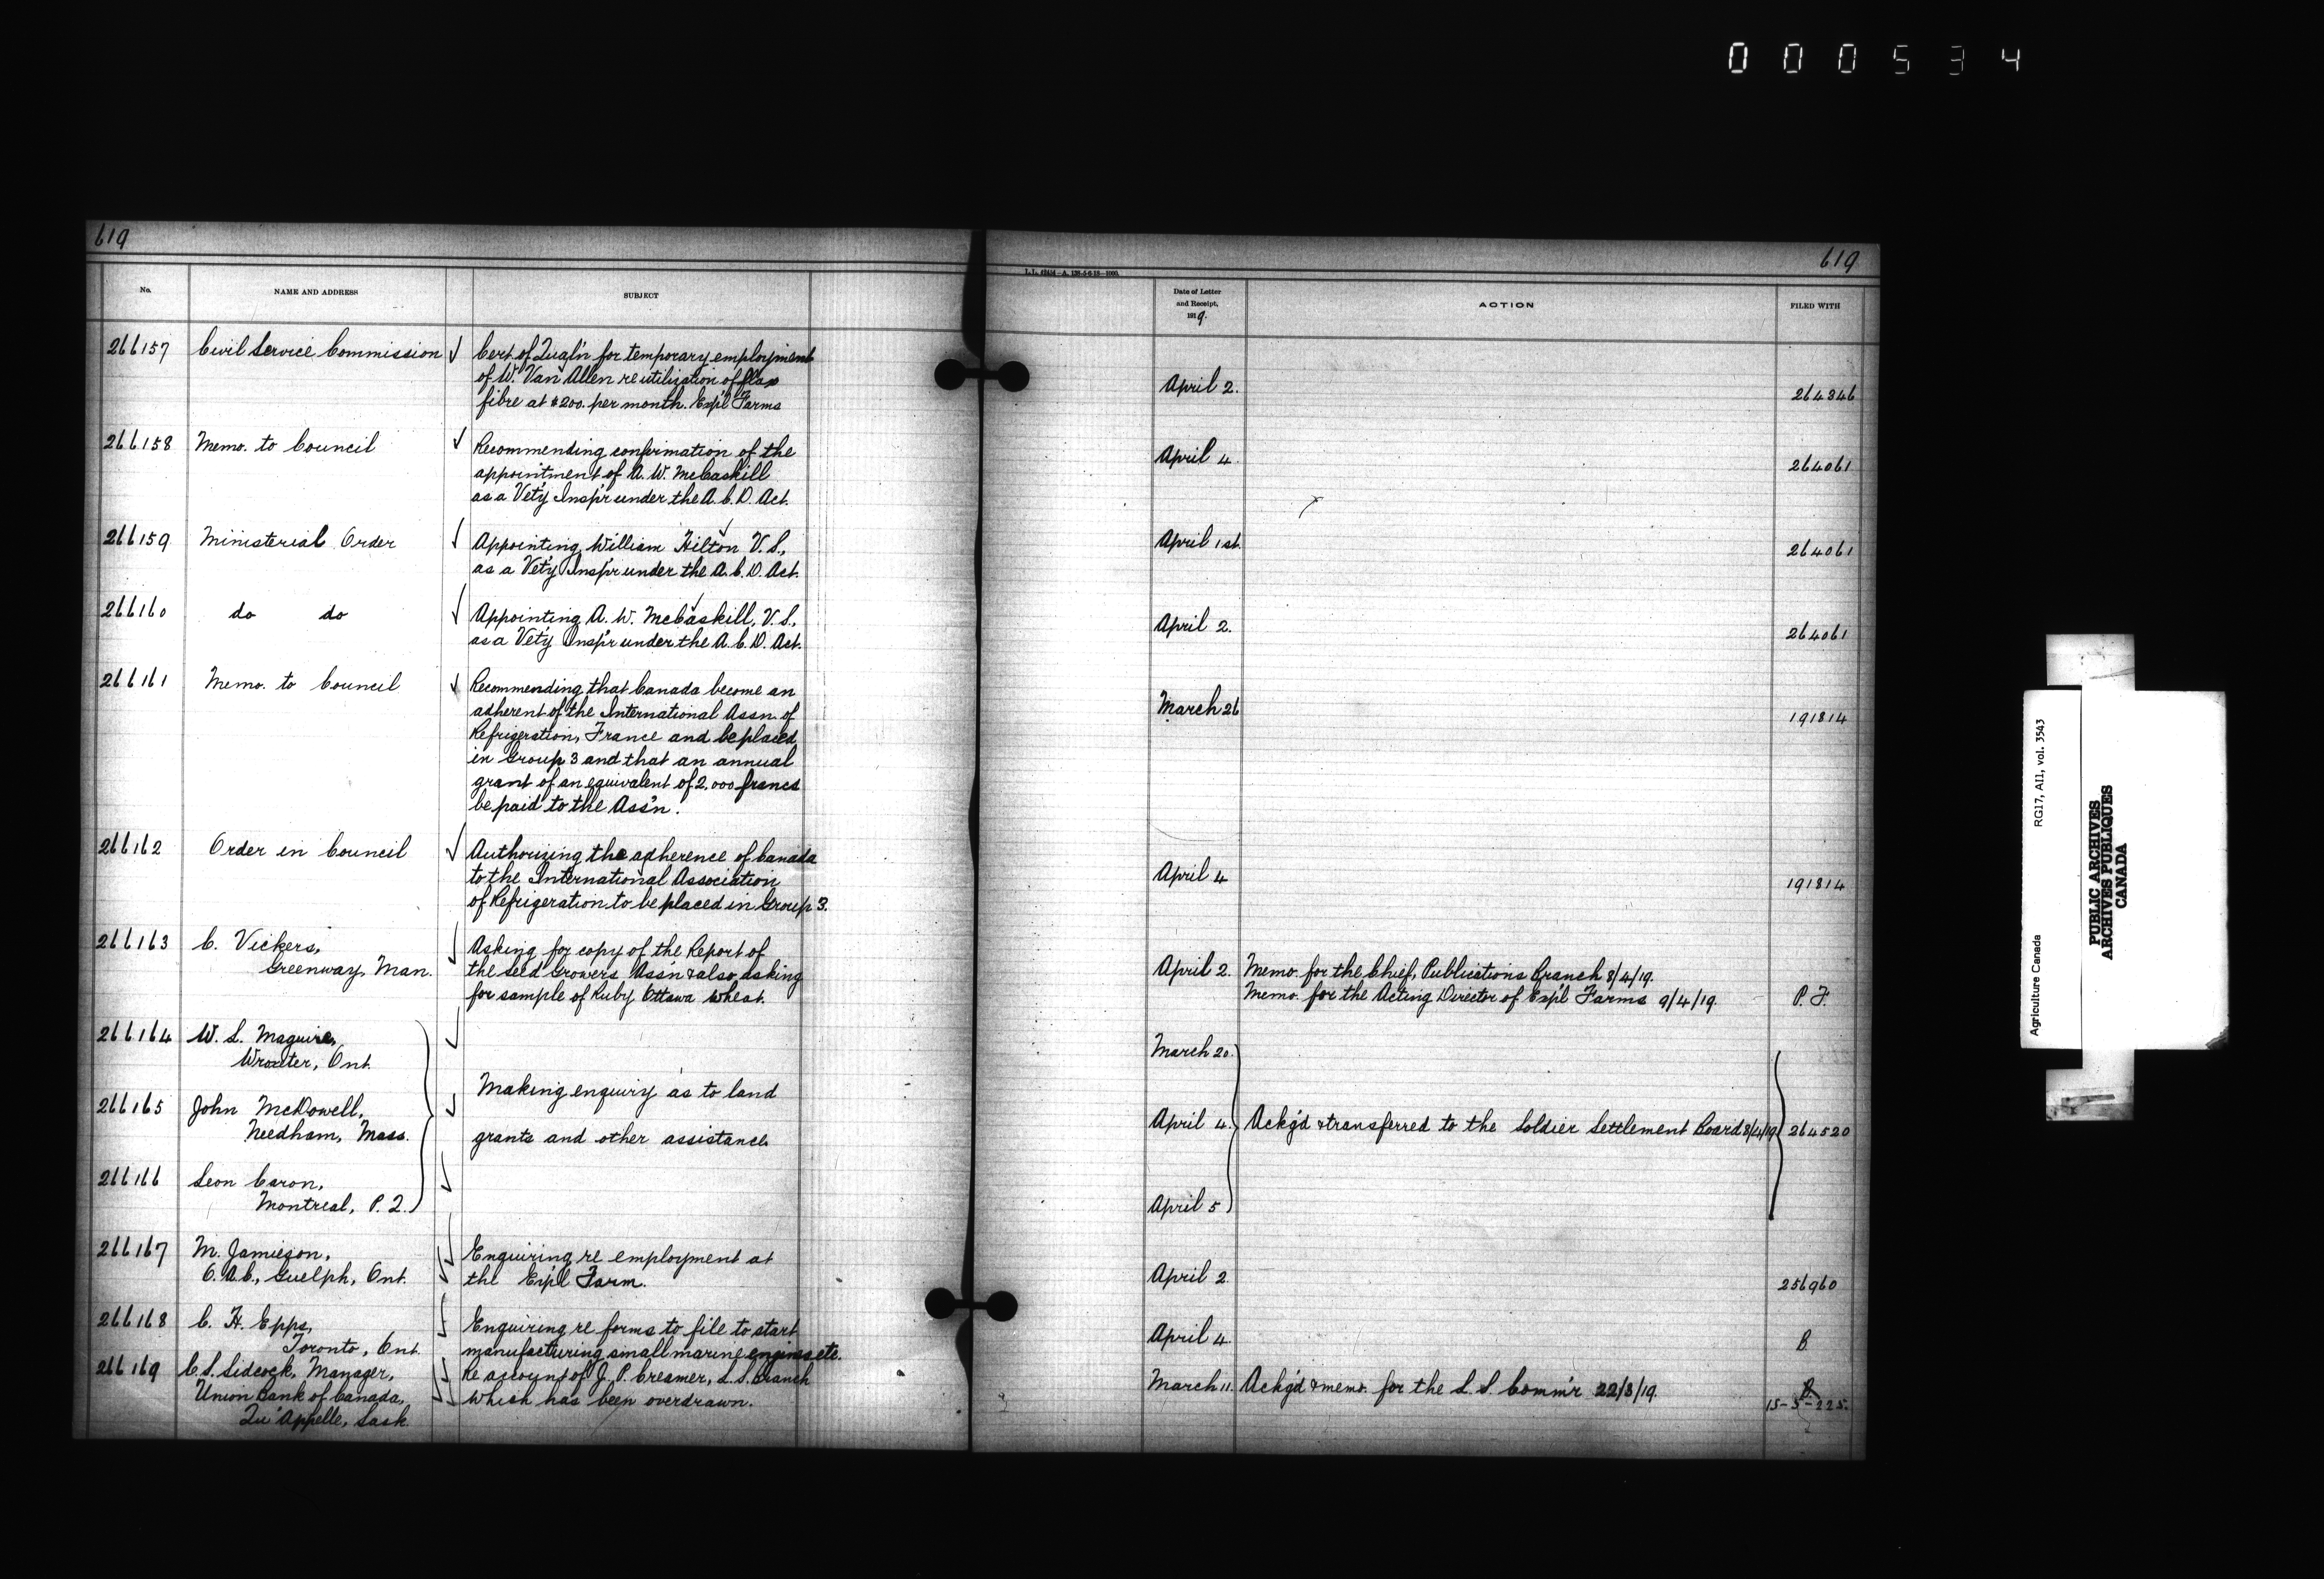 000534
619
619
L.L. 42454-A. 138-5-6-18-1000.
No.
NAME AND ADDRESS
SUBJECT
Date of Letter
and Receipt,
1919.
ACTION
FILED WITH
266157 Civil Service Commission Cert. of Qual'n for temporary employment
of W. Van Allen re utilization of flax
fibre at $200. per month. Exp'l Farms
April 2. 264346
266158 Memo. to Council Recommending confirmation of the
appointment of A. W. McCaskill
as a Vet'y Insp'r under the A. C. D. Act.
April 4. 264061
266159 Ministerial Order Appointing William Hilton V. S.,
as a Vet'y Insp'r under the A. C. D. Act.
April 1st. 264061
266160 do do Appointing A. W. McCaskill, V. S.,
as a Vet'y Insp'r under the A. C. D. Act.
April 2. 264061
266161 Memo. to Council Recommending that Canada become an
adherent of the International Assn. of
Refrigeration, France and be placed
in Group 3 and that an annual
grant of an equivalent of 2,000 francs
be paid to the Ass'n.
March 26 191814
266162 Order in Council Authorizing the adherence of Canada
to the International Association
of Refrigeration to be placed in Group 3.
April 4 191814
266163 C. Vickers, Asking for copy of the Report of
Greenway, Man. the Seed Growers Ass'n & also asking
for sample of Ruby Ottawa wheat.
April 2. Memo. for the Chief, Publications Branch 8/4/19.
Memo. for the Acting Director of Exp'l Farms 9/4/19. P. F.
266164 W. S. Maguire,
Wroxeter, Ont.
March 20.
Making enquiry as to land
266165 John McDowell,
Needham, Mass. grants and other assistance.
April 4. Ackg'd & transferred to the Soldier Settlement Board 8/4/19 264520
266166 Leon Caron,
Montreal, P. Q.
April 5
266167 M. Jamieson, Enquiring re employment at
O. A. C., Guelph, Ont. the Exp'l Farm.
April 2. 256960
266168 C. H. Epps, Enquiring re forms to file to start
Toronto, Ont. manufacturing small marine engines etc.
April 4. B.
266169 C. S. Sidcock, Manager, Re account of J. P. Creamer, L. S. Branch
Union Bank of Canada, which has been overdrawn.
Qu'Appelle, Sask.
March 11. Ackg'd & memo. for the L. S. Comm'r 22/3/19.
15-5-225.
Agriculture Canada RG17, A11, vol. 3543
PUBLIC ARCHIVES
ARCHIVES PUBLIQUES
CANADA